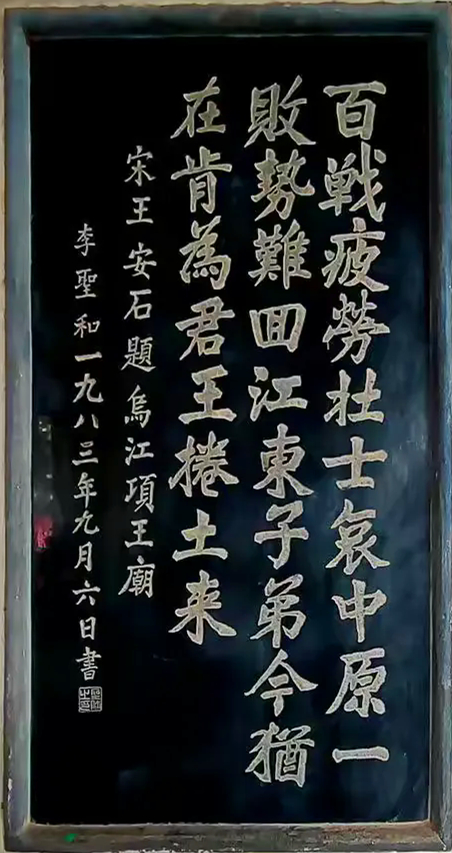 百戦疲勞壮士哀中原一
敗势難回江東子弟今猶
在肯為君王捲土来
宋王安石題烏江項王廟
李聖和一九八三年九月六日書